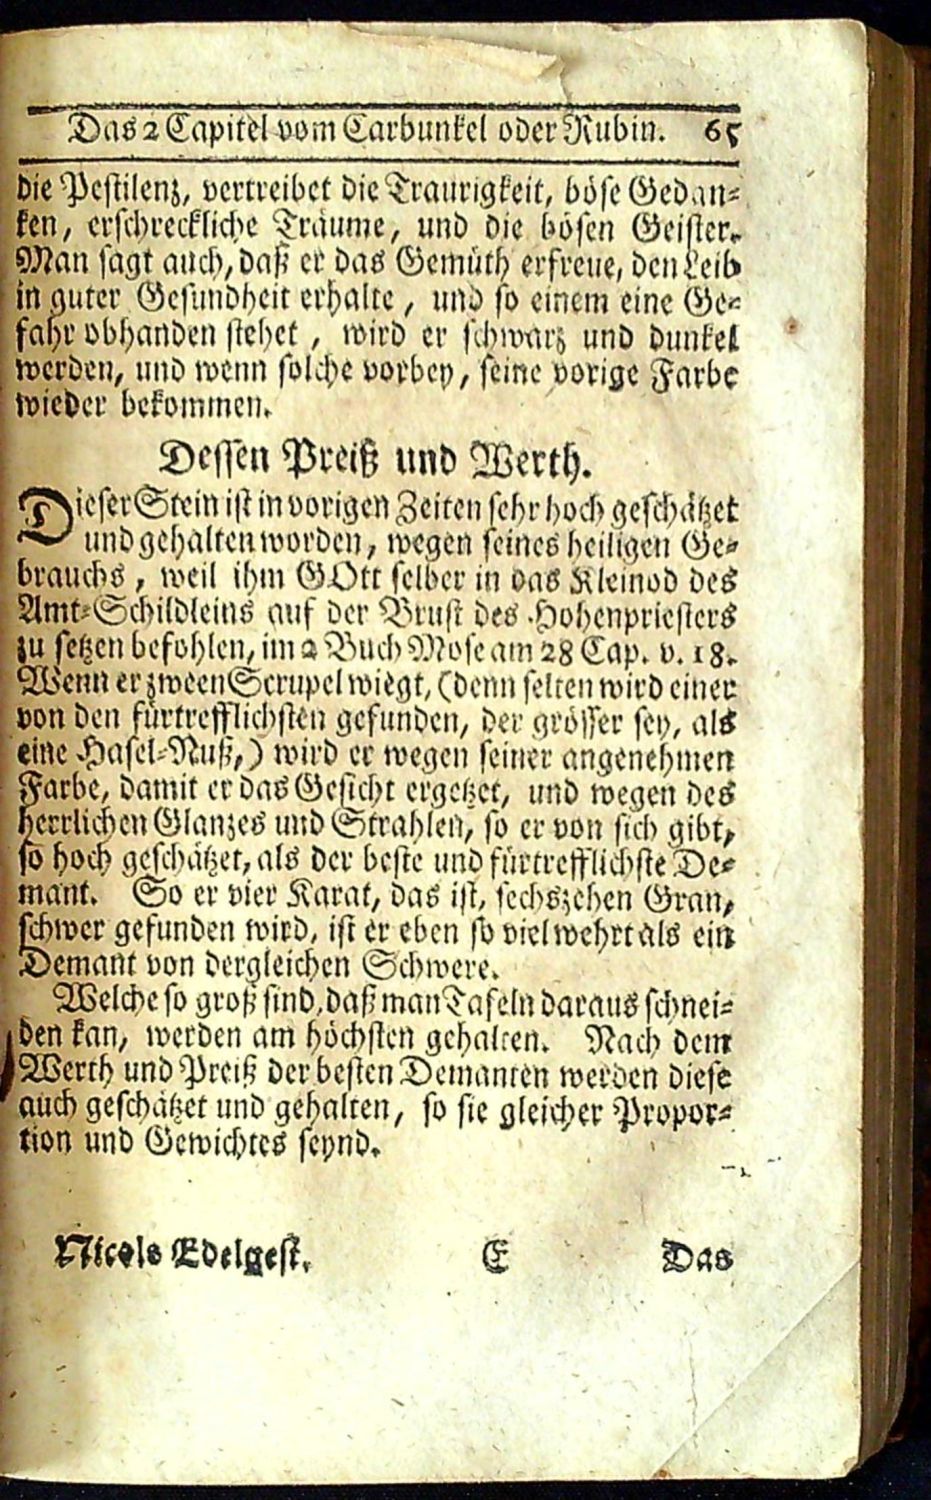 Das 2 Capitel vom Carbunkel oder Rubin. 65
die Pestilenz, vertreibet die Traurigkeit, böse Gedan-
ken, erschreckliche Träume, und die bösen Geister.
Man sagt auch, daß er das Gemüth erfreue, den Leib
in guter Gesundheit erhalte, und so einem eine Ge-
fahr obhanden stehet, wird er schwarz und dunkel
werden, und wenn solche vorbey, seine vorige Farbe
wieder bekommen.
Dessen Preiß und Werth.
Dieser Stein ist in vorigen Zeiten sehr hoch geschätzet
und gehalten worden, wegen seines heiligen Ge-
brauchs, weil ihm GOtt selber in das Kleinod des
Amt-Schildleins auf der Brust des Hohenpriesters
zu setzen befohlen, im 2 Buch Mose am 28 Cap. v. 18.
Wenn er zween Scrupel wiegt, (denn selten wird einer
von den fürtrefflichsten gefunden, der grösser sey, als
eine Hasel-Nuß,) wird er wegen seiner angenehmen
Farbe, damit er das Gesicht ergetzet, und wegen des
herrlichen Glanzes und Strahlen, so er von sich gibt,
so hoch geschätzet, als der beste und fürtrefflichste De-
mant. So er vier Karat, das ist, sechszehen Gran,
schwer gefunden wird, ist er eben so viel wehrt als ein
Demant von dergleichen Schwere.
Welche so groß sind, daß man Tafeln daraus schnei-
den kan, werden am höchsten gehalten. Nach dem
Werth und Preiß der besten Demanten werden diese
auch geschätzet und gehalten, so sie gleicher Propor-
tion und Gewichtes seynd.
Nicols Edelgest. E Das